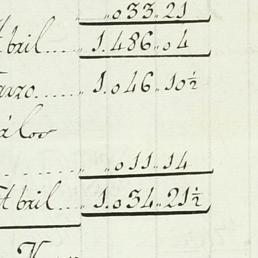 „ „033„21
Abril....„ 1.486„04
„ 1„046„10½
álor
„ „011„14
Abril...„ 1.034„21½